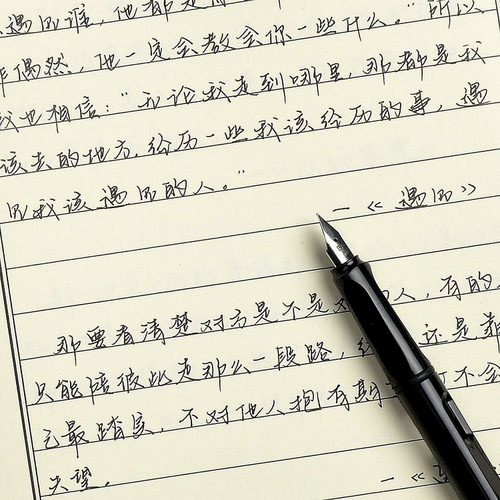 遇见谁，他都是
偶然，他一定会教会你一些什么。”所以
我也相信：“无论我走到哪里，那都是我
该去的地方，经历一些我该经历的事，遇
见我该遇见的人。”
—《遇见》
那要看清楚对方是不是对 人，有的
只能陪彼此走那么一段路， 还是靠
己最踏实，不对他人抱有期 不会
失望。
—《